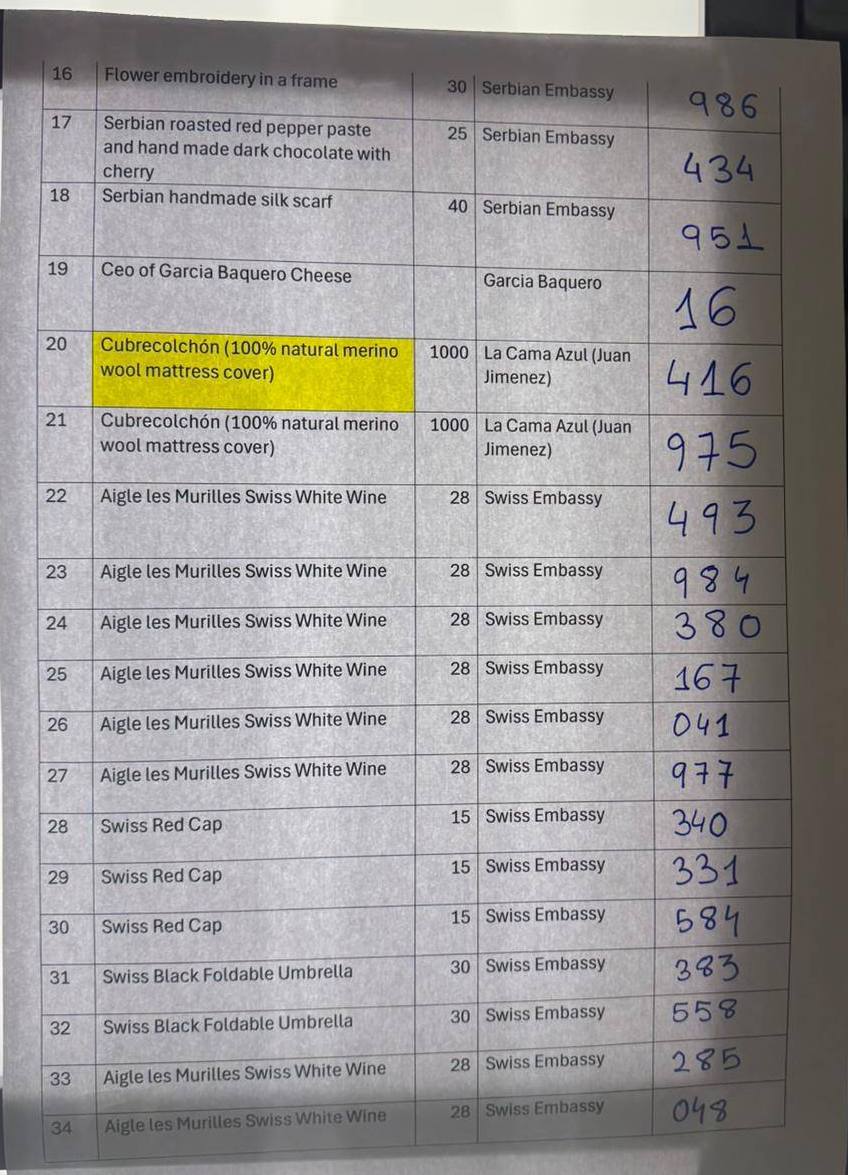 16 Flower embroidery in a frame 30 Serbian Embassy 986
17 Serbian roasted red pepper paste 25 Serbian Embassy 434
and hand made dark chocolate with
cherry
18 Serbian handmade silk scarf 40 Serbian Embassy 951
19 Ceo of Garcia Baquero Cheese Garcia Baquero 16
20 Cubrecolchón (100% natural merino 1000 La Cama Azul (Juan 416
wool mattress cover) Jimenez)
21 Cubrecolchón (100% natural merino 1000 La Cama Azul (Juan 975
wool mattress cover) Jimenez)
22 Aigle les Murilles Swiss White Wine 28 Swiss Embassy 493
23 Aigle les Murilles Swiss White Wine 28 Swiss Embassy 984
24 Aigle les Murilles Swiss White Wine 28 Swiss Embassy 380
25 Aigle les Murilles Swiss White Wine 28 Swiss Embassy 167
26 Aigle les Murilles Swiss White Wine 28 Swiss Embassy 041
27 Aigle les Murilles Swiss White Wine 28 Swiss Embassy 977
28 Swiss Red Cap 15 Swiss Embassy 340
29 Swiss Red Cap 15 Swiss Embassy 331
30 Swiss Red Cap 15 Swiss Embassy 584
31 Swiss Black Foldable Umbrella 30 Swiss Embassy 383
32 Swiss Black Foldable Umbrella 30 Swiss Embassy 558
33 Aigle les Murilles Swiss White Wine 28 Swiss Embassy 285
34 Aigle les Murilles Swiss White Wine 28 Swiss Embassy 048